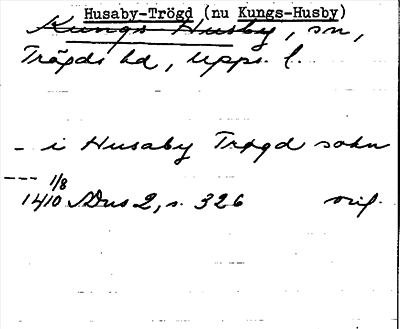 Husaby-Trögd (nu Kungs-Husby)
Kungs-Husby, sn,
Trögds hd, Upps. l.
- i Husaby Trøgd sokn
--- 1/8
1410 SDns 2, s. 326 orig.